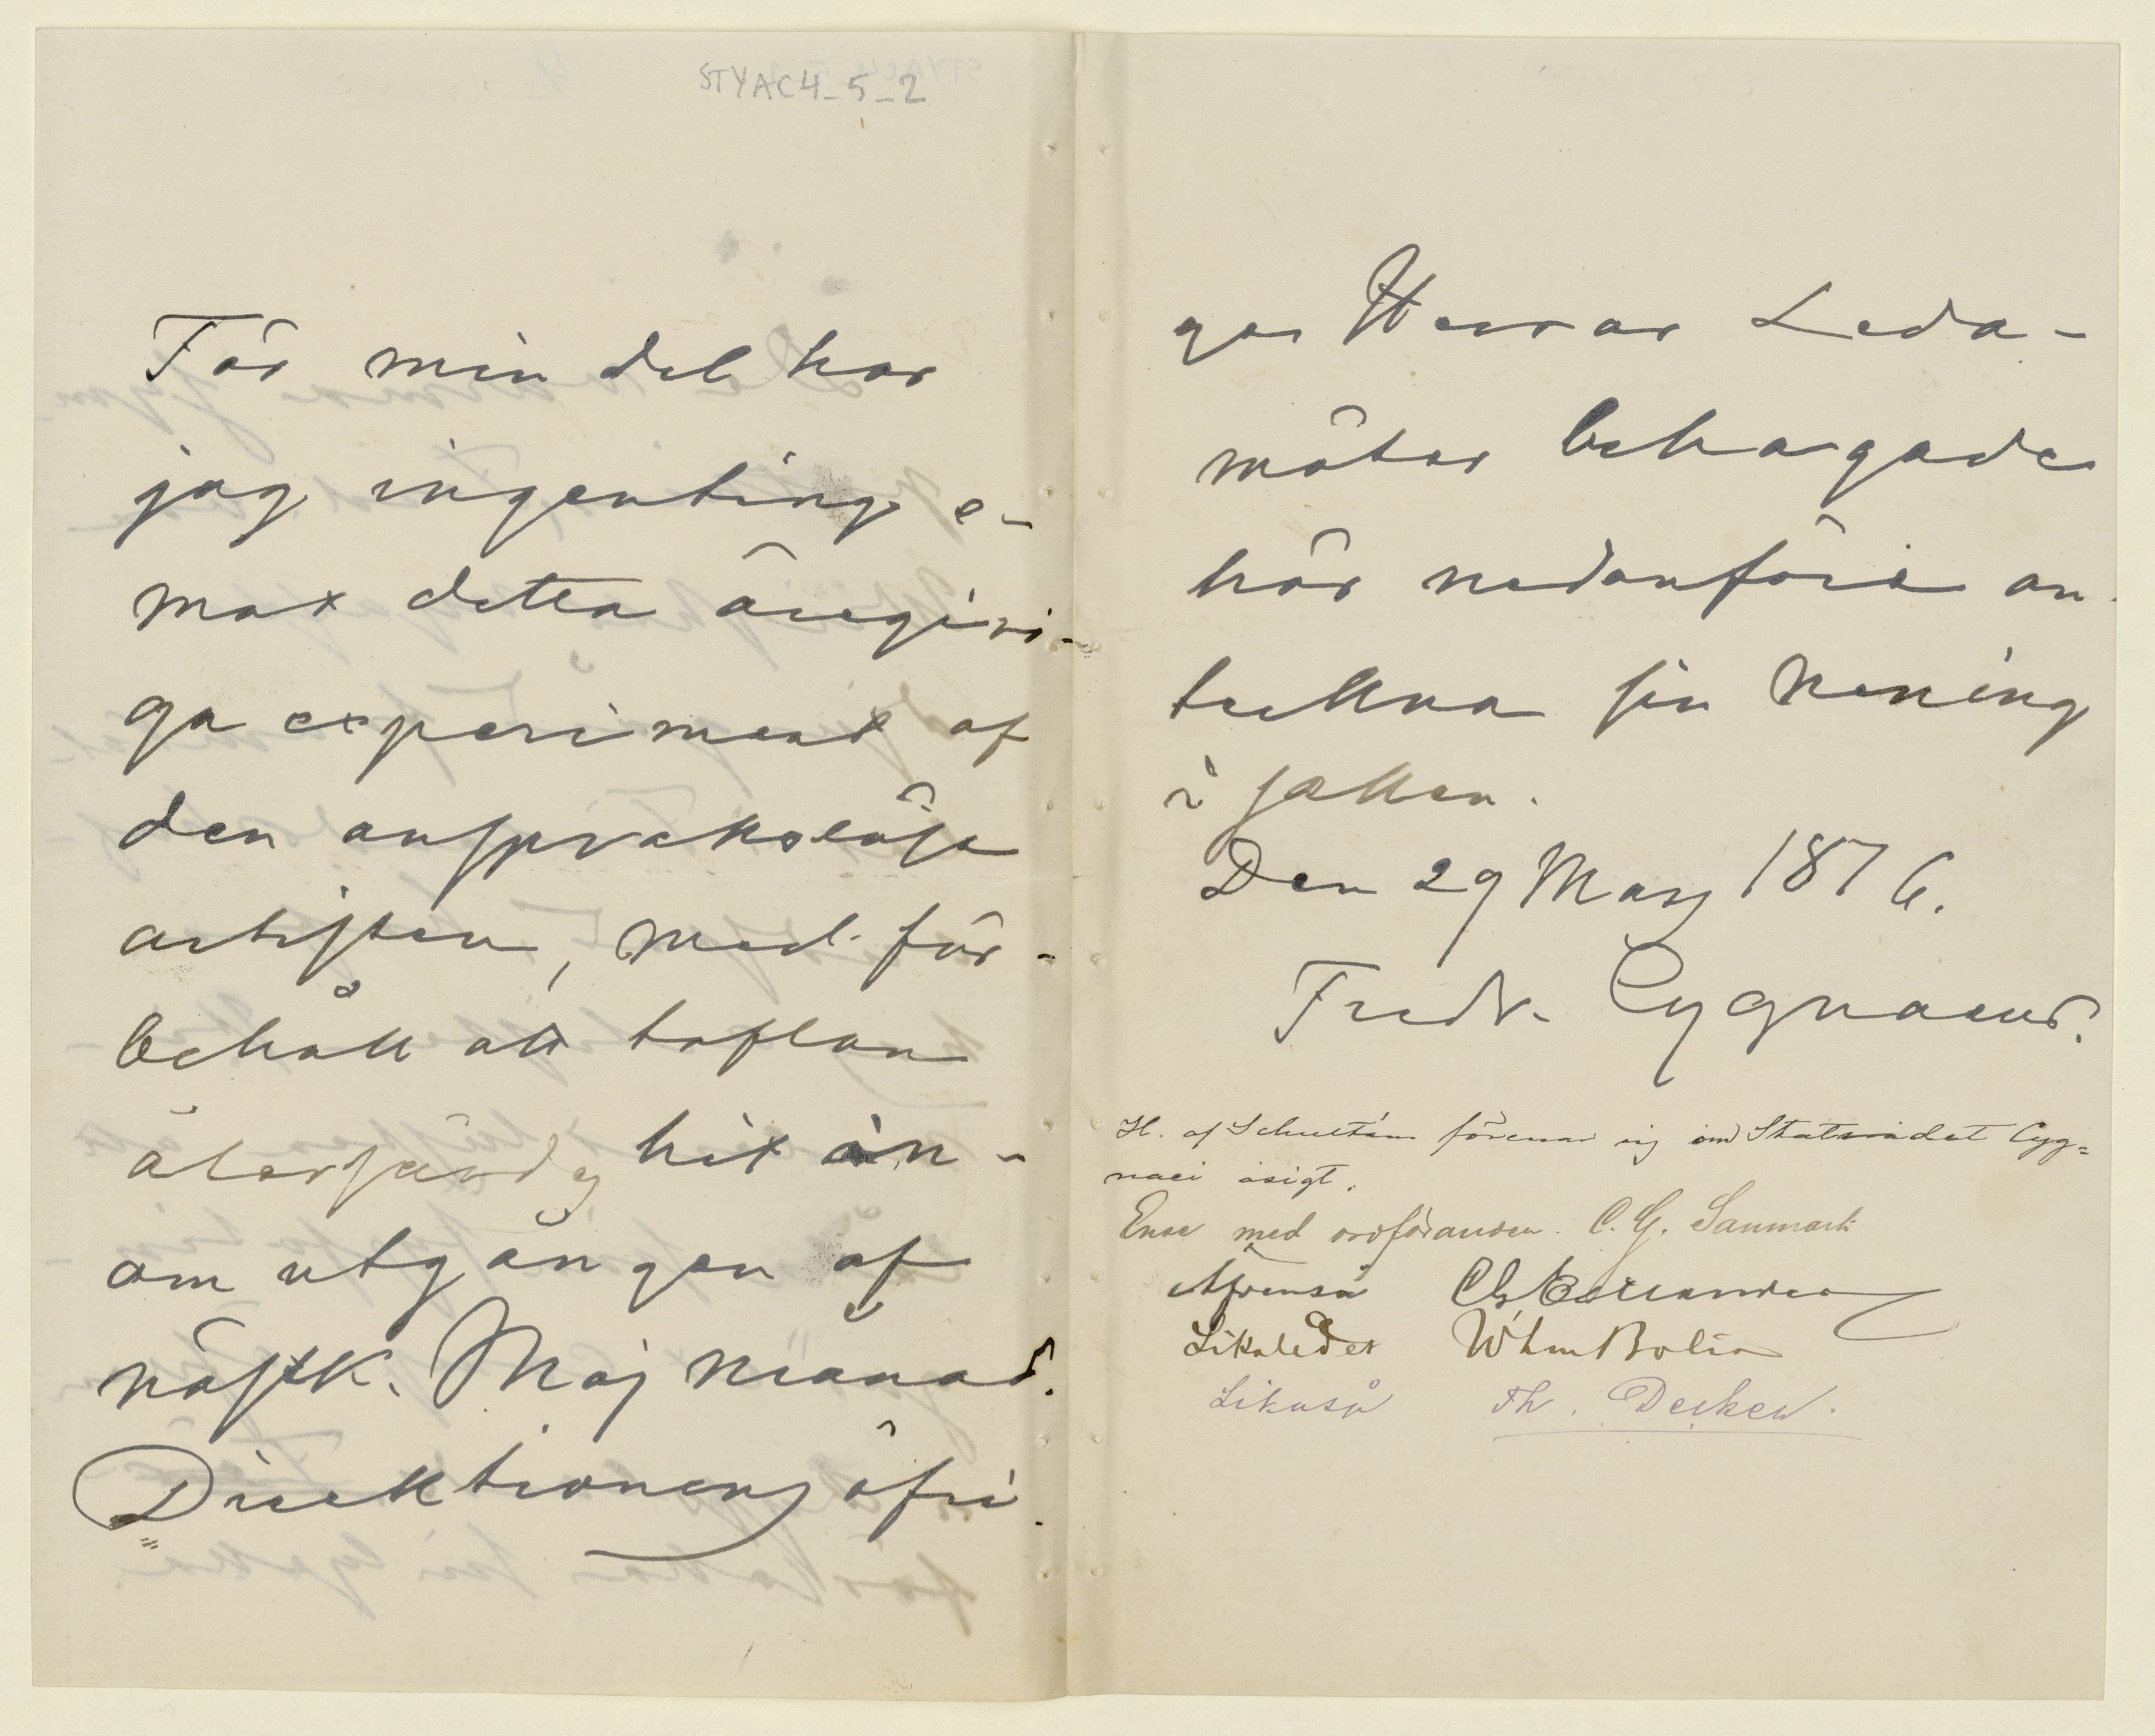 STYAC4_5_2
För min del har
jag ingenting e-
mot detta äregiri-
ga experiment af
den anspråkslösa
artisten, med för-
behåll att taflan
återsändes hit in-
om utgången af
nästk. Maj månad.
Direktionens öfri
ga Herrar Leda-
möter behagade
här nedanföre an-
teckna sin mening
i saken.
Den 29 Mars 1876.
Fredr. Cygnaeus.
H. af Schultén förenar sig om Statsrådet Cyg=
naei åsigt.
Ense med ordföranden. C. G. Sanmark
Äfvenså
Likaledes Whm Bolin
Likaså Th. Decker.